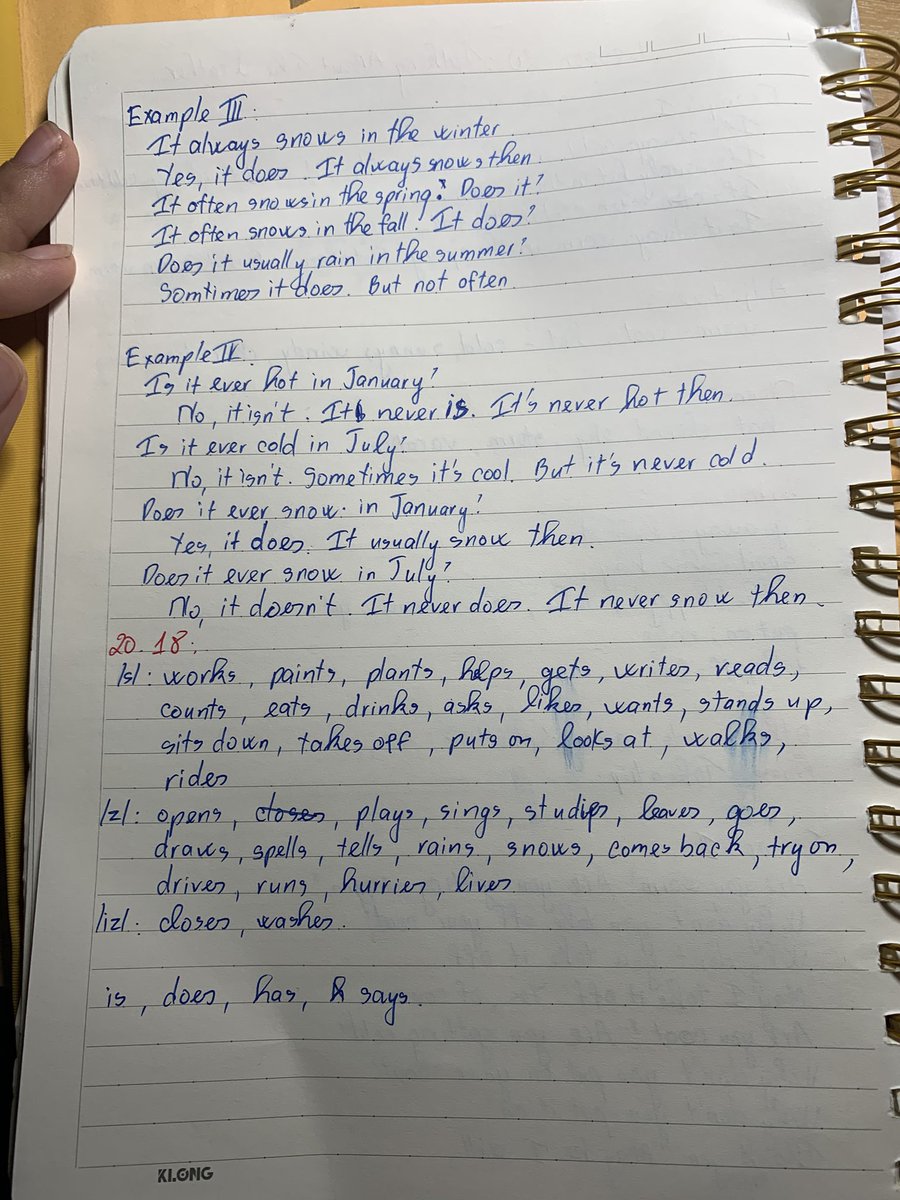 Example III:
It always snows in the winter.
Yes, it does. It always snows then.
It often snows in the spring? Does it?
It often snows in the fall! It does?
Does it usually rain in the summer?
Somtimes it does. But not often
Example IV:
Is it ever hot in January?
No, it isn't. It never is. It's never hot then.
Is it ever cold in July?
No, it isn't. Sometimes it's cool. But it's never cold.
Does it ever snow in January?
Yes, it does. It usually snow then.
Does it ever snow in July?
No, it doesn't. It never does. It never snow then.
20.18:
/s/: works, paints, plants, helps, gets, writes, reads,
counts, eats, drinks, asks, likes, wants, stands up,
sits down, takes off, puts on, looks at, walks,
rides
/z/: opens, closes, plays, sings, studies, leaves, goes,
draws, spells, tells, rains, snows, comes back, try on,
drives, runs, hurries, lives
/iz/: closes, washes.
is, does, has, says.
KLONG